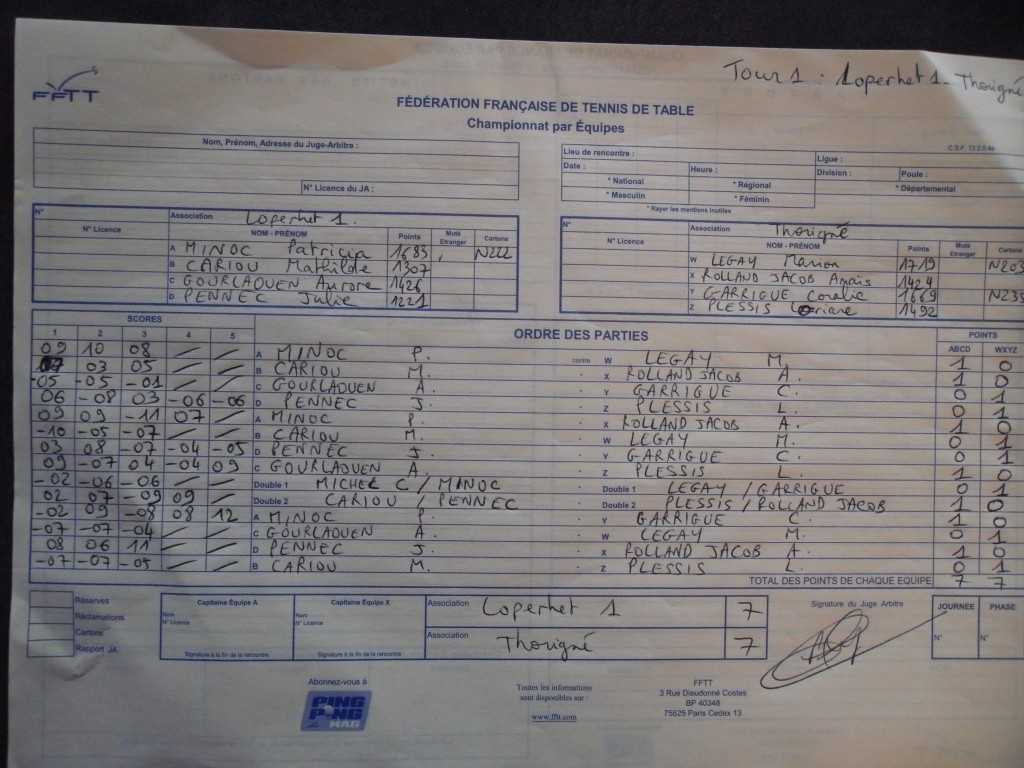 Tour 1 : Loperhet 1 - Thorigné
FFTT
FÉDÉRATION FRANÇAISE DE TENNIS DE TABLE
Championnat par Équipes
C.S.F. 13.2.5.4e
Nom, Prénom, Adresse du Juge-Arbitre :
N° Licence du JA :
Lieu de rencontre : Ligue :
Date : Heure : Division : Poule :
* National * Régional * Départemental
* Masculin * Féminin
* Rayer les mentions inutiles
N° Association Loperhet 1.
N° Licence NOM - PRÉNOM Points Muté Etranger Cartons
A MINOC Patricia 1683 N222
B CARIOU Mathilde 1307
C GOURLAOUEN Aurore 1426
D PENNEC Julie 1221
N° Association Thorigné
N° Licence NOM - PRÉNOM Points Muté Etranger Cartons
W LEGAY Marion 1719 N203
X ROLLAND JACOB Anaïs 1424
Y GARRIGUE Coralie 1669 N235
Z PLESSIS 1492
SCORES ORDRE DES PARTIES POINTS
1 2 3 4 5 ABCD WXYZ
09 10 08 / / A MINOC P. contre W LEGAY M. 1 0
07 03 05 / / B CARIOU M. - X ROLLAND JACOB A. 1 0
-05 -05 -01 / / C GOURLAOUEN A. - Y GARRIGUE C. 0 1
06 -08 03 -06 -06 D PENNEC J. - Z PLESSIS L. 0 1
09 09 -11 07 / A MINOC P. - X ROLLAND JACOB A. 1 0
-10 -05 -07 / / B CARIOU M. - W LEGAY M. 0 1
03 08 -07 -04 -05 D PENNEC J. - Y GARRIGUE C. 0 1
09 -07 04 -04 09 C GOURLAOUEN A. - Z PLESSIS L. 1 0
-02 -06 -06 / / Double 1 MICHEL C / MINOC Double 1 LEGAY / GARRIGUE 0 1
02 07 -09 09 / Double 2 CARIOU / PENNEC Double 2 PLESSIS / ROLLAND JACOB 1 0
-02 09 -08 08 12 A MINOC P. - Y GARRIGUE C. 1 0
-07 -07 -04 / / C GOURLAOUEN A. - W LEGAY M. 0 1
08 06 11 / / D PENNEC J. - X ROLLAND JACOB A. 1 0
-07 -07 -05 / / B CARIOU M. - Z PLESSIS L. 0 1
TOTAL DES POINTS DE CHAQUE EQUIPE 7 7
Réserves
Réclamations
Cartons
Rapport JA
Capitaine Équipe A
Nom
N° Licence
Signature à la fin de la rencontre
Capitaine Équipe X
Nom
N° Licence
Signature à la fin de la rencontre
Association Loperhet 1 7
Association Thorigné 7
Signature du Juge Arbitre
JOURNEE PHASE
N° N°
Abonnez-vous à
PING PONG MAG
Toutes les informations
sont disponibles sur :
www.fftt.com
FFTT
3 Rue Dieudonné Costes
BP 40348
75625 Paris Cedex 13